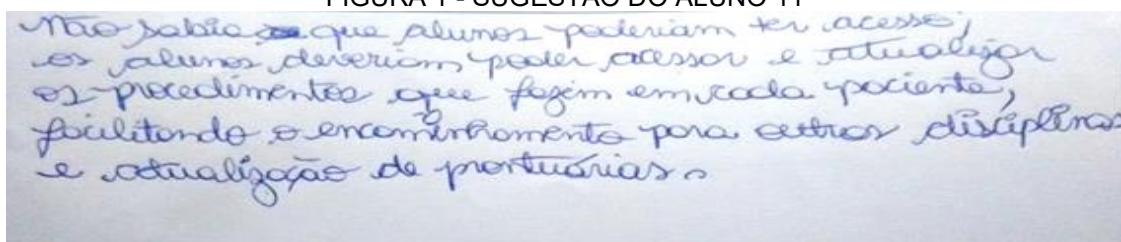 FIGURA 1 - SUGESTÃO DO ALUNO 11
Não sabia que alunos poderiam ter acesso;
os alunos deveriam poder acessar e atualizar
os procedimentos que fazem em cada paciente,
facilitando o encaminhamento para outras disciplinas
e atualização de prontuárias.